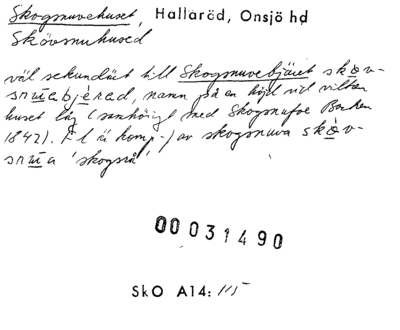 Skogsnuvehuset, Hallaröd, Onsjö hd
Skövsnuhused
väl sekundärt till Skogsnuvebjäret sköv-
snuabjerad, namn på en höjd vid vilken
huset låg (samhörigt med Skogsnufve Backen
1842). F-l är komp. av skogsnuva sköv-
snua 'skogsrå'
00031490
SkO A14: 115